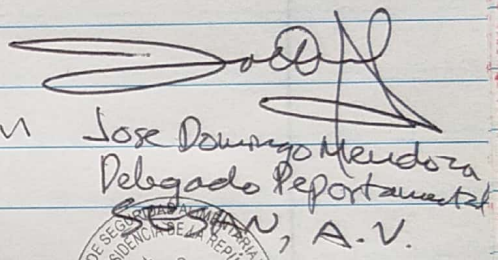 Jose Domingo Mendoza
Delegado Departamental
SESAN, A.V.
DE SEGURIDAD ALIMENTARIA
PRESIDENCIA DE LA REPÚ